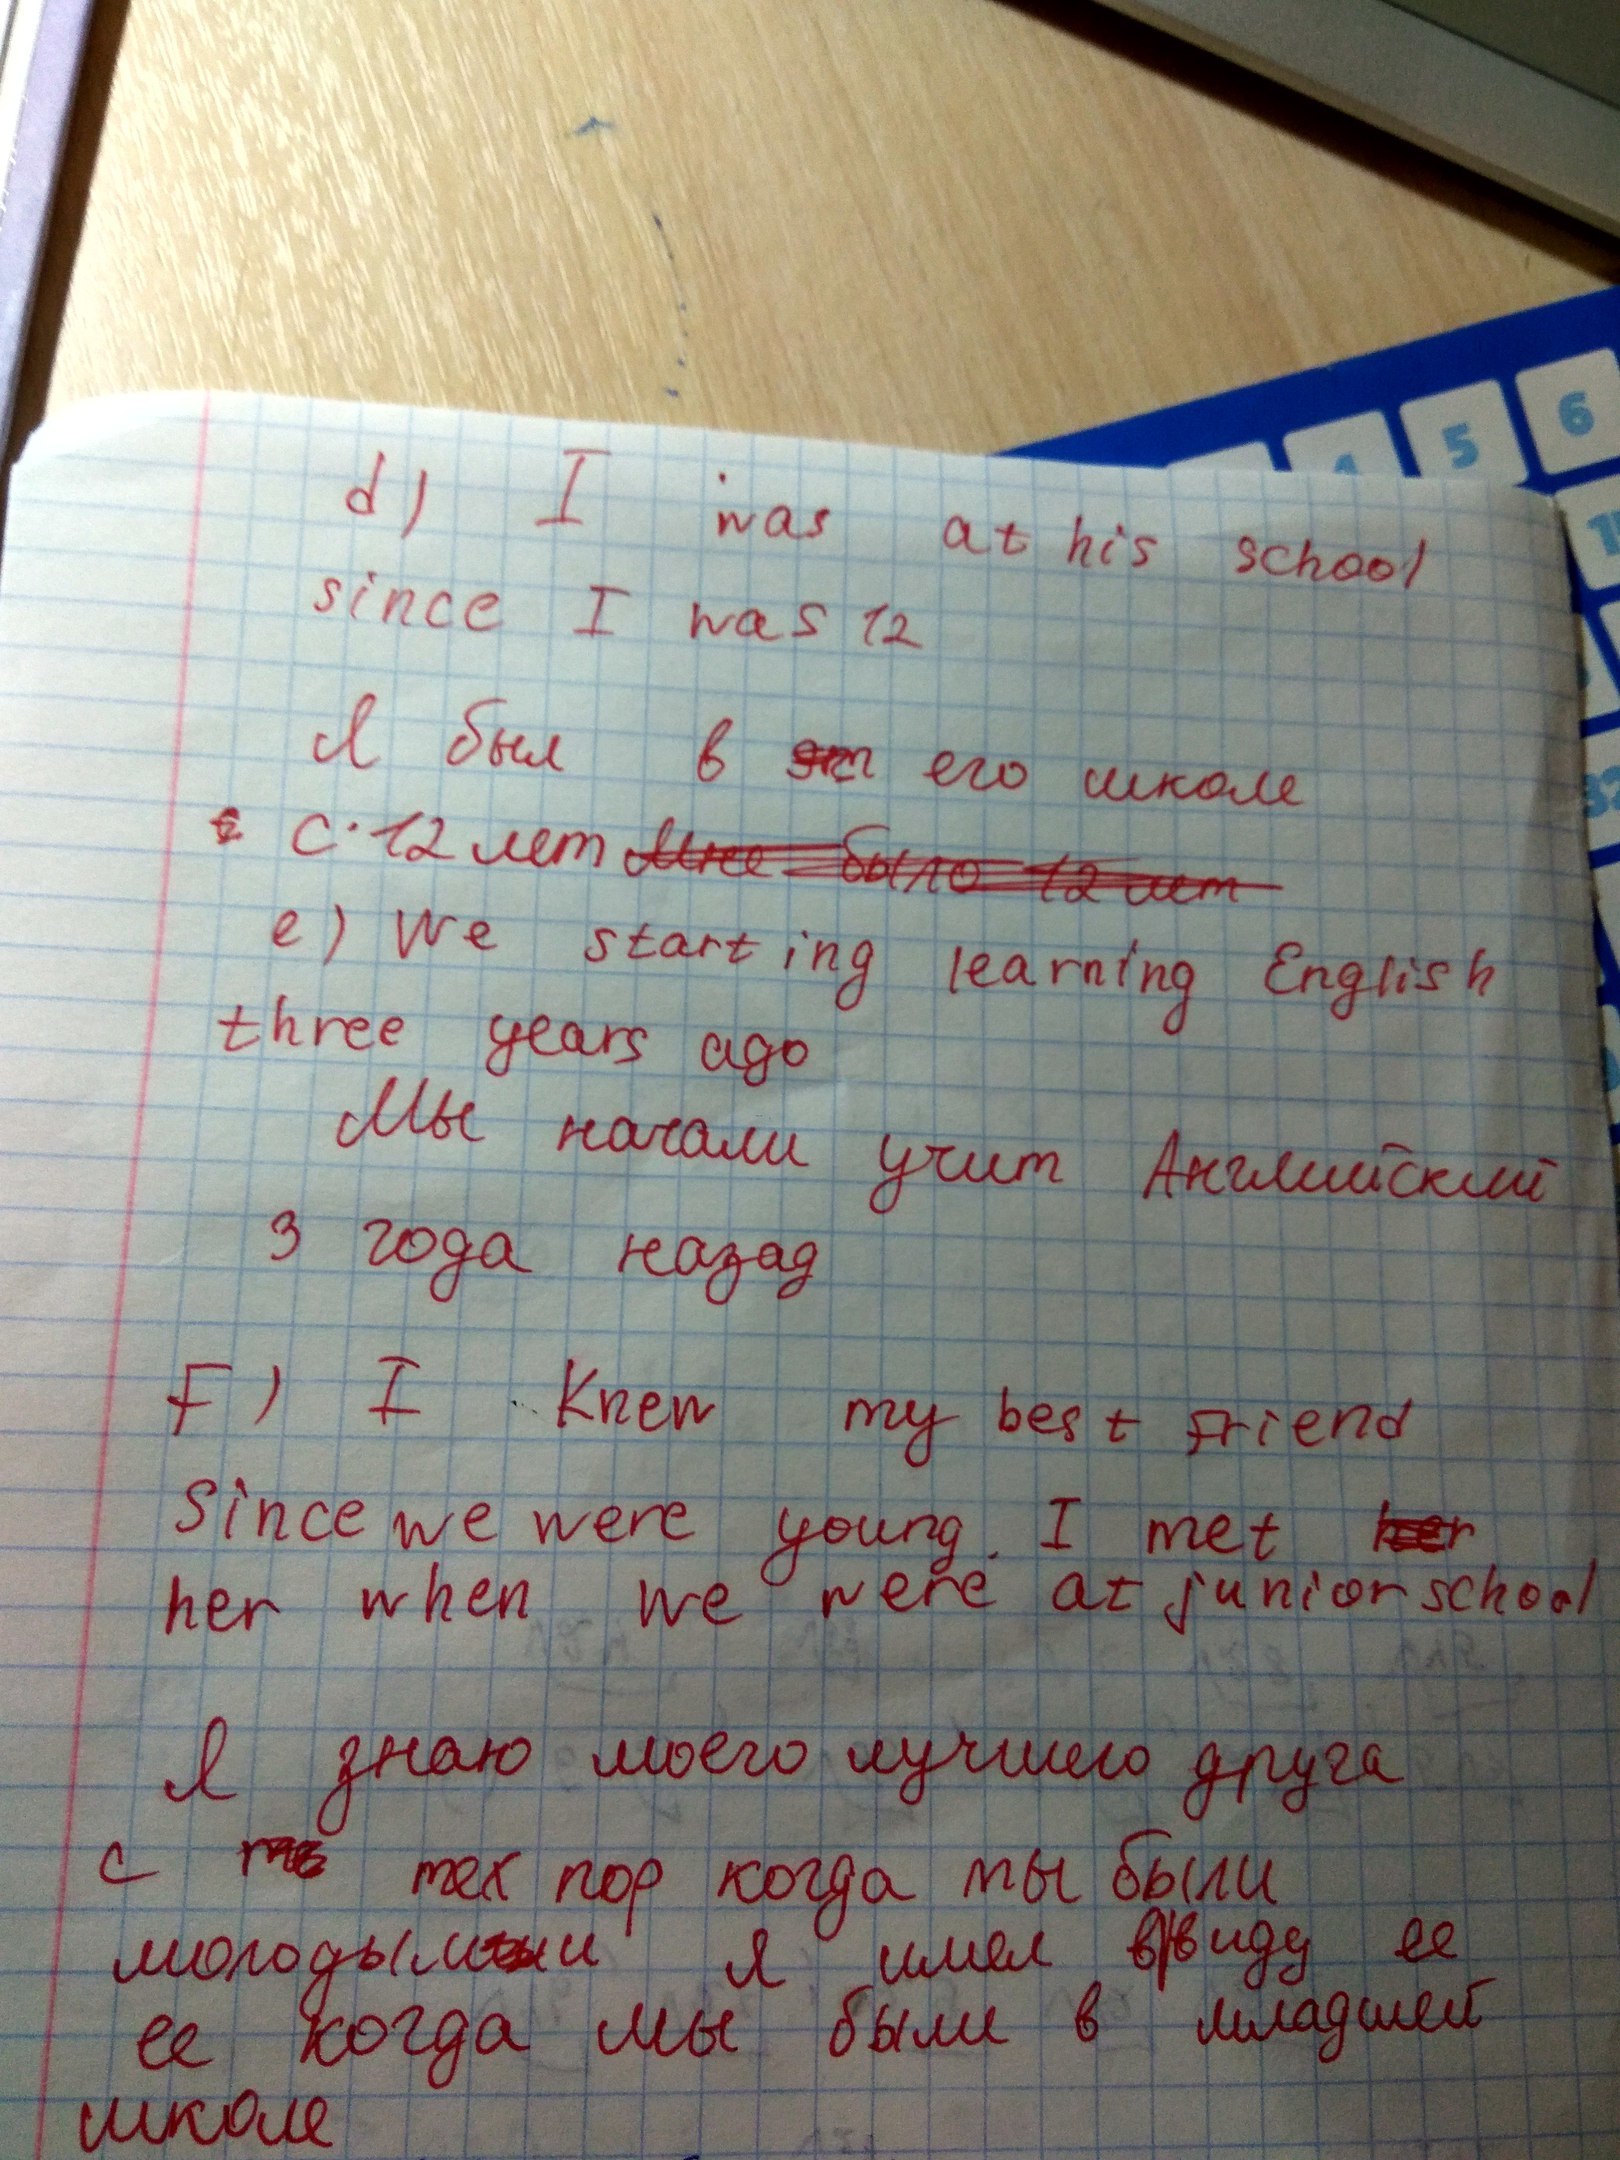 5
6
d) I was at his school
since I was 12
Я был в его школе
с 12 лет Мне было 12 лет
e) We starting learning English
three years ago
Мы начали учит Английский
3 года назад
F) I Knew my best Friend
Since we were young. I met her
her when we were at junior school
Я знаю моего лучшего друга
с тех пор когда мы были
молодыми Я имел ввиду ее
ее когда мы были в младшей
школе